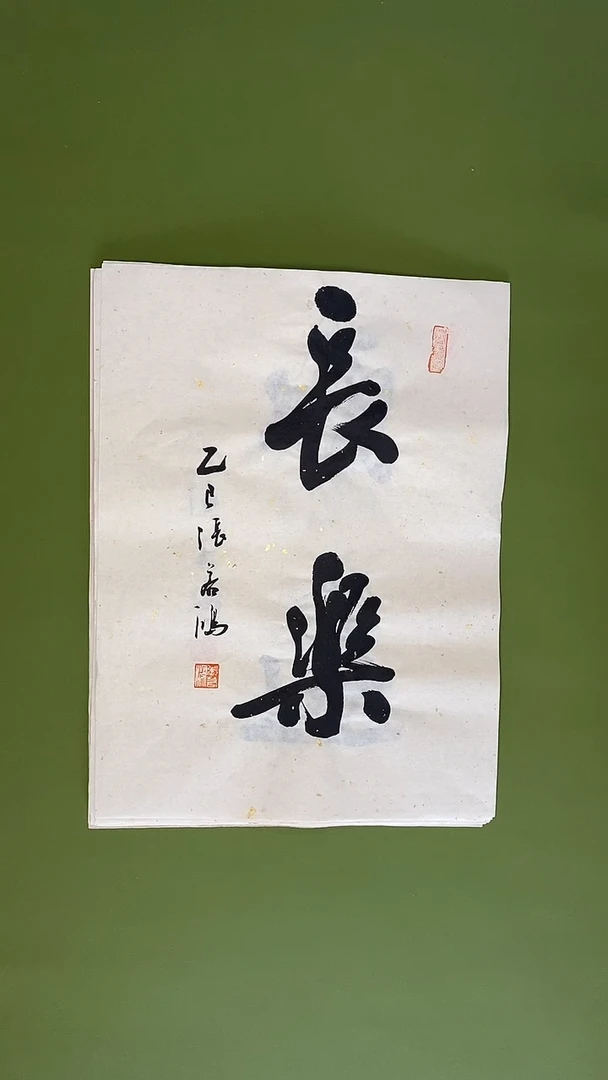 長樂
乙巳張若鴻